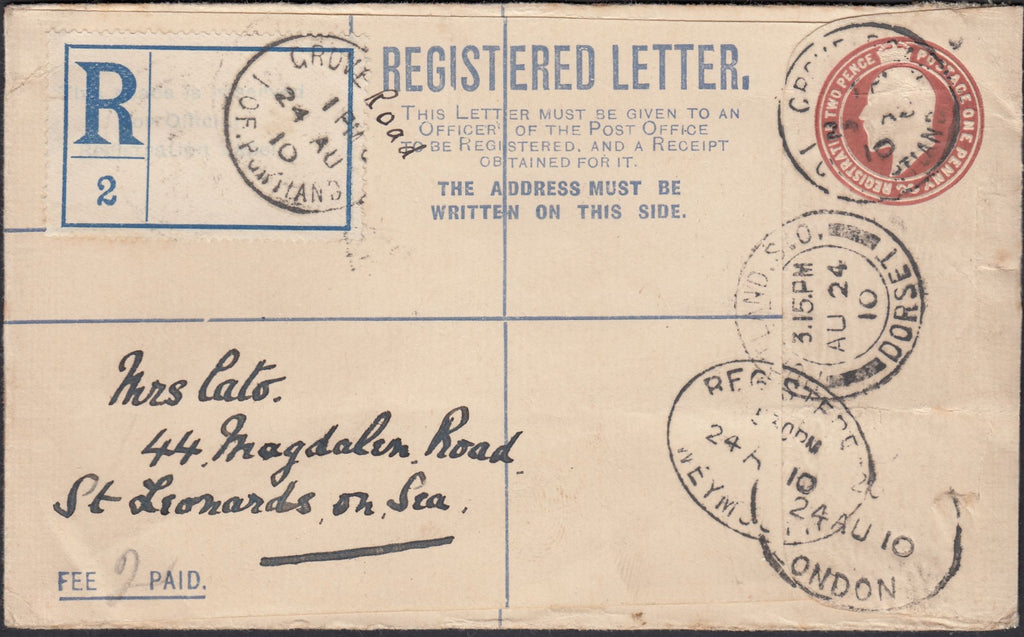 R
2
GROVE Road
1 PM
24 AU
10
I. OF. PORTLAND
REGISTERED LETTER.
THIS LETTER MUST BE GIVEN TO AN
OFFICER OF THE POST OFFICE
TO BE REGISTERED, AND A RECEIPT
OBTAINED FOR IT.
THE ADDRESS MUST BE
WRITTEN ON THIS SIDE.
POSTAGE ONE PENNY
REGISTRATION TWO PENCE
LAND. S.O.
DORSET
3.15 PM
AU 24
10
REGISTERED
30 PM
24 A 10
WEYMOUTH
24 AU 10
LONDON
Mrs Cato.
44, Magdalen Road
St Leonards on Sea.
FEE 2 PAID.